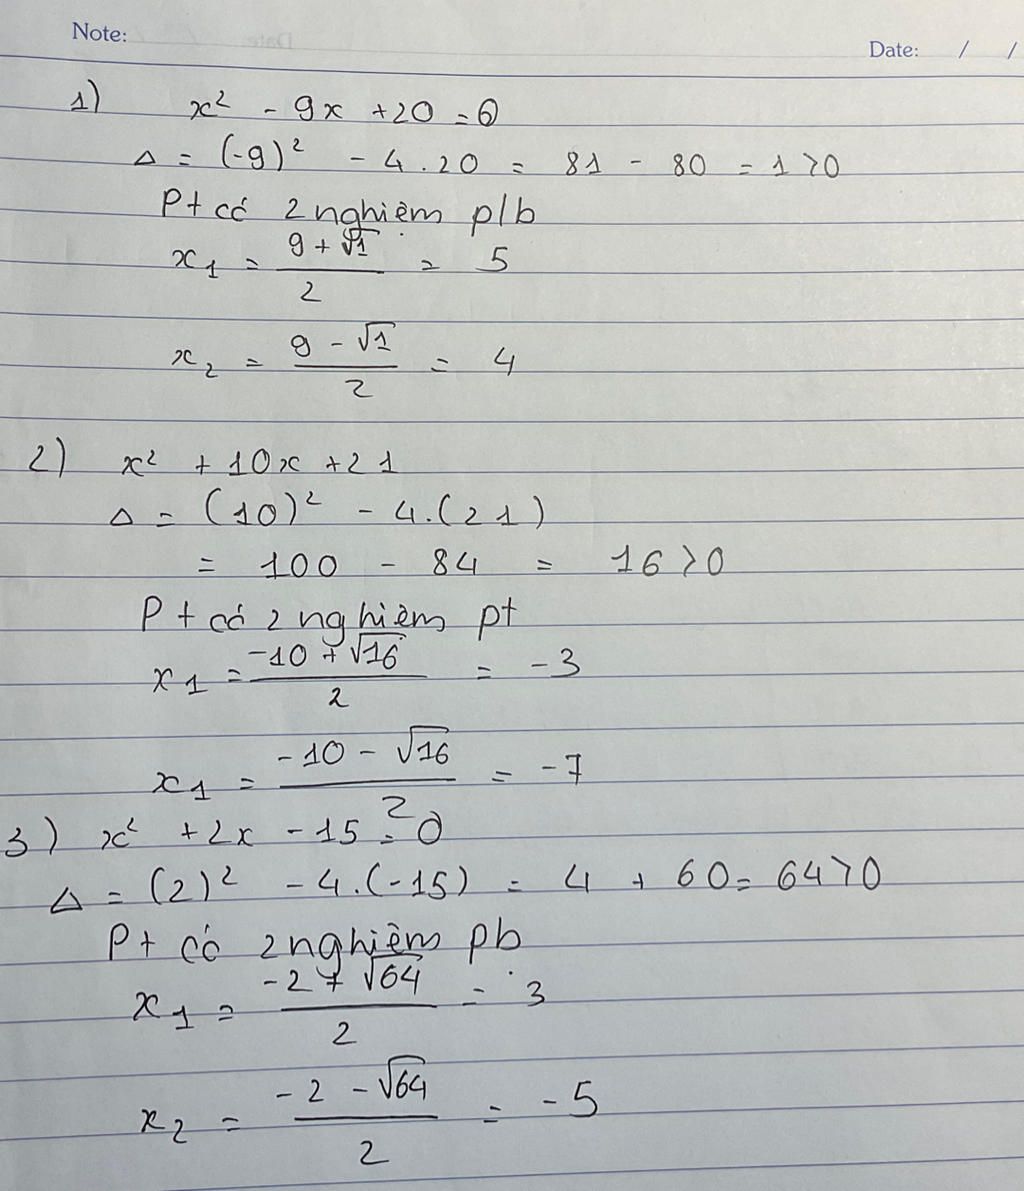 Note:
Date: / /
1) x² - 9x + 20 = 0
Δ = (-9)² - 4.20 = 81 - 80 = 1 > 0
Pt có 2 nghiệm p/b
x₁ = (9 + √1)/2 = 5
x₂ = (9 - √1)/2 = 4
2) x² + 10x + 21
Δ = (10)² - 4.(21)
= 100 - 84 = 16 > 0
Pt có 2 nghiệm pt
x₁ = (-10 + √16)/2 = -3
x₁ = (-10 - √16)/2 = -7
3) x² + 2x - 15 = 0
Δ = (2)² - 4.(-15) = 4 + 60 = 64 > 0
Pt có 2 nghiệm pb
x₁ = (-2 + √64)/2 = 3
x₂ = (-2 - √64)/2 = -5